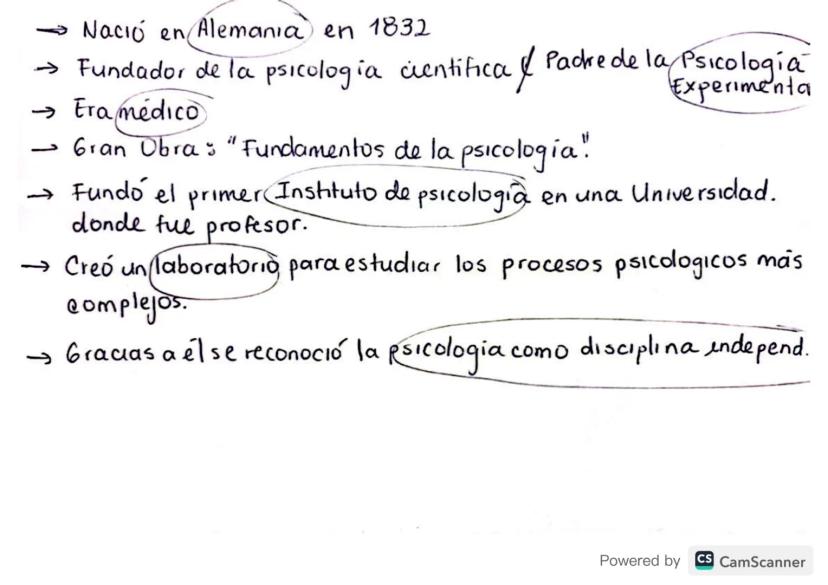 → Nació en Alemania en 1832
→ Fundador de la psicología científica y Padre de la Psicología
Experimenta
→ Era médico
→ Gran Obra: "Fundamentos de la psicología".
→ Fundó el primer Instituto de psicología en una Universidad.
donde fue profesor.
→ Creó un laboratorio para estudiar los procesos psicologicos más
complejos.
→ Gracias a él se reconoció la psicologia como disciplina independ.
Powered by CS CamScanner